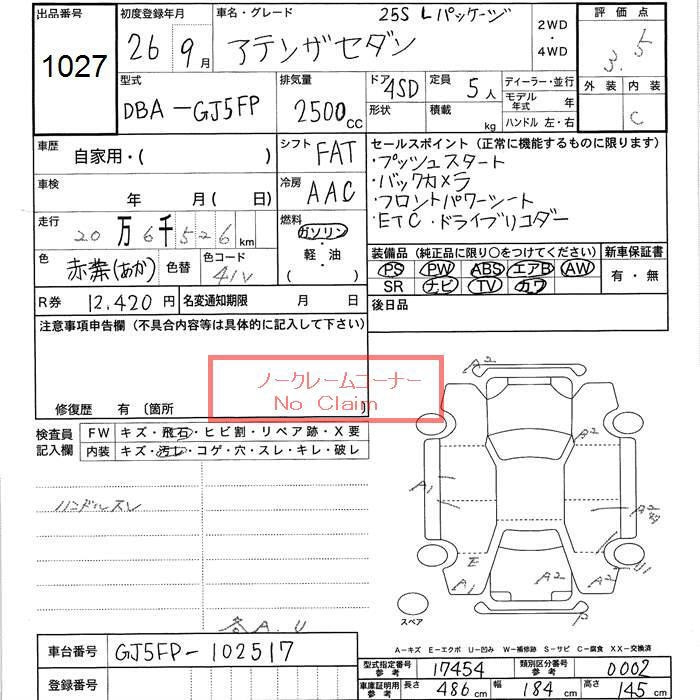 出品番号 初度登録年月 車名・グレード 25S Lパッケージ 2WD・4WD 評価点
1027 26 9月 アテンザセダン 3.5
型式 DBA-GJ5FP 排気量 2500cc ドア 4SD 定員 5人 ディーラー・並行 外装 内装
形状 積載 kg モデル年式 年 C
ハンドル 左・右
車歴 自家用・( ) シフト FAT セールスポイント(正常に機能するものに限ります)
・プッシュスタート
車検 年 月(日) 冷房 AAC ・バックカメラ
・フロントパワーシート
走行 20万6千526km 燃料 ガソリン・軽・油( ) ・ETC・ドライブリコダー
色 赤葉(あか) 色替 色コード 41V 装備品(純正品に限り○をつけてください) 新車保証書
PS PW ABS エアB AW 有・無
SR ナビ TV カワ
R券 12,420円 名変通知期限 月 日 後日品
注意事項申告欄(不具合内容等は具体的に記入して下さい)
ノークレームコーナー
No Claim
修復歴 有〔箇所 〕
検査員記入欄 FW キズ・飛石・ヒビ割・リペア跡・X要
内装 キズ・汚れ・コゲ・穴・スレ・キレ・破レ
ハンドルスレ
各A.U
A2
B2
A1
A2
E
A1
A2
A2
U1
P
スペア
A-キズ E-エクボ U-凹み W-補修跡 S-サビ C-腐食 XX-交換済
車台番号 GJ5FP-102517
型式指定番号参考 17454 類別区分番号参考 0002
登録番号 車庫証明用参考 長さ 486cm 幅 184cm 高さ 145cm